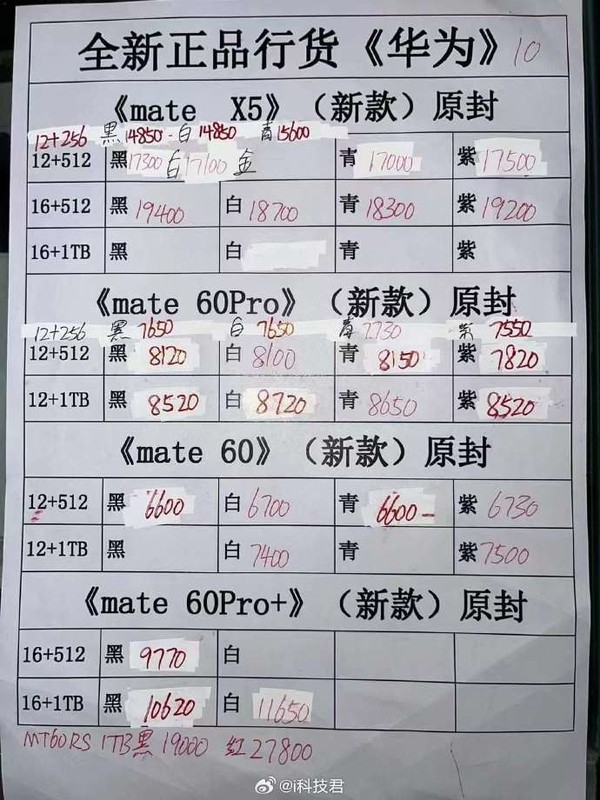 全新正品行货《华为》10
《mate X5》（新款）原封
12+256 黑14850-白14850 青15600
12+512 黑17300 白17100 金 青17000 紫17500
16+512 黑19400 白18700 青18300 紫19200
16+1TB 黑 白 青 紫
《mate 60Pro》（新款）原封
12+256 黑7650 白7650 青7730 紫7550
12+512 黑8120 白8100 青8150 紫7820
12+1TB 黑8520 白8720 青8650 紫8520
《mate 60》（新款）原封
12+512 黑6600 白6700 青6600- 紫6730
12+1TB 黑 白7400 青 紫7500
《mate 60Pro+》（新款）原封
16+512 黑9770 白
16+1TB 黑10620 白11650
MT60RS 1TB黑19000 红27800
@i科技君